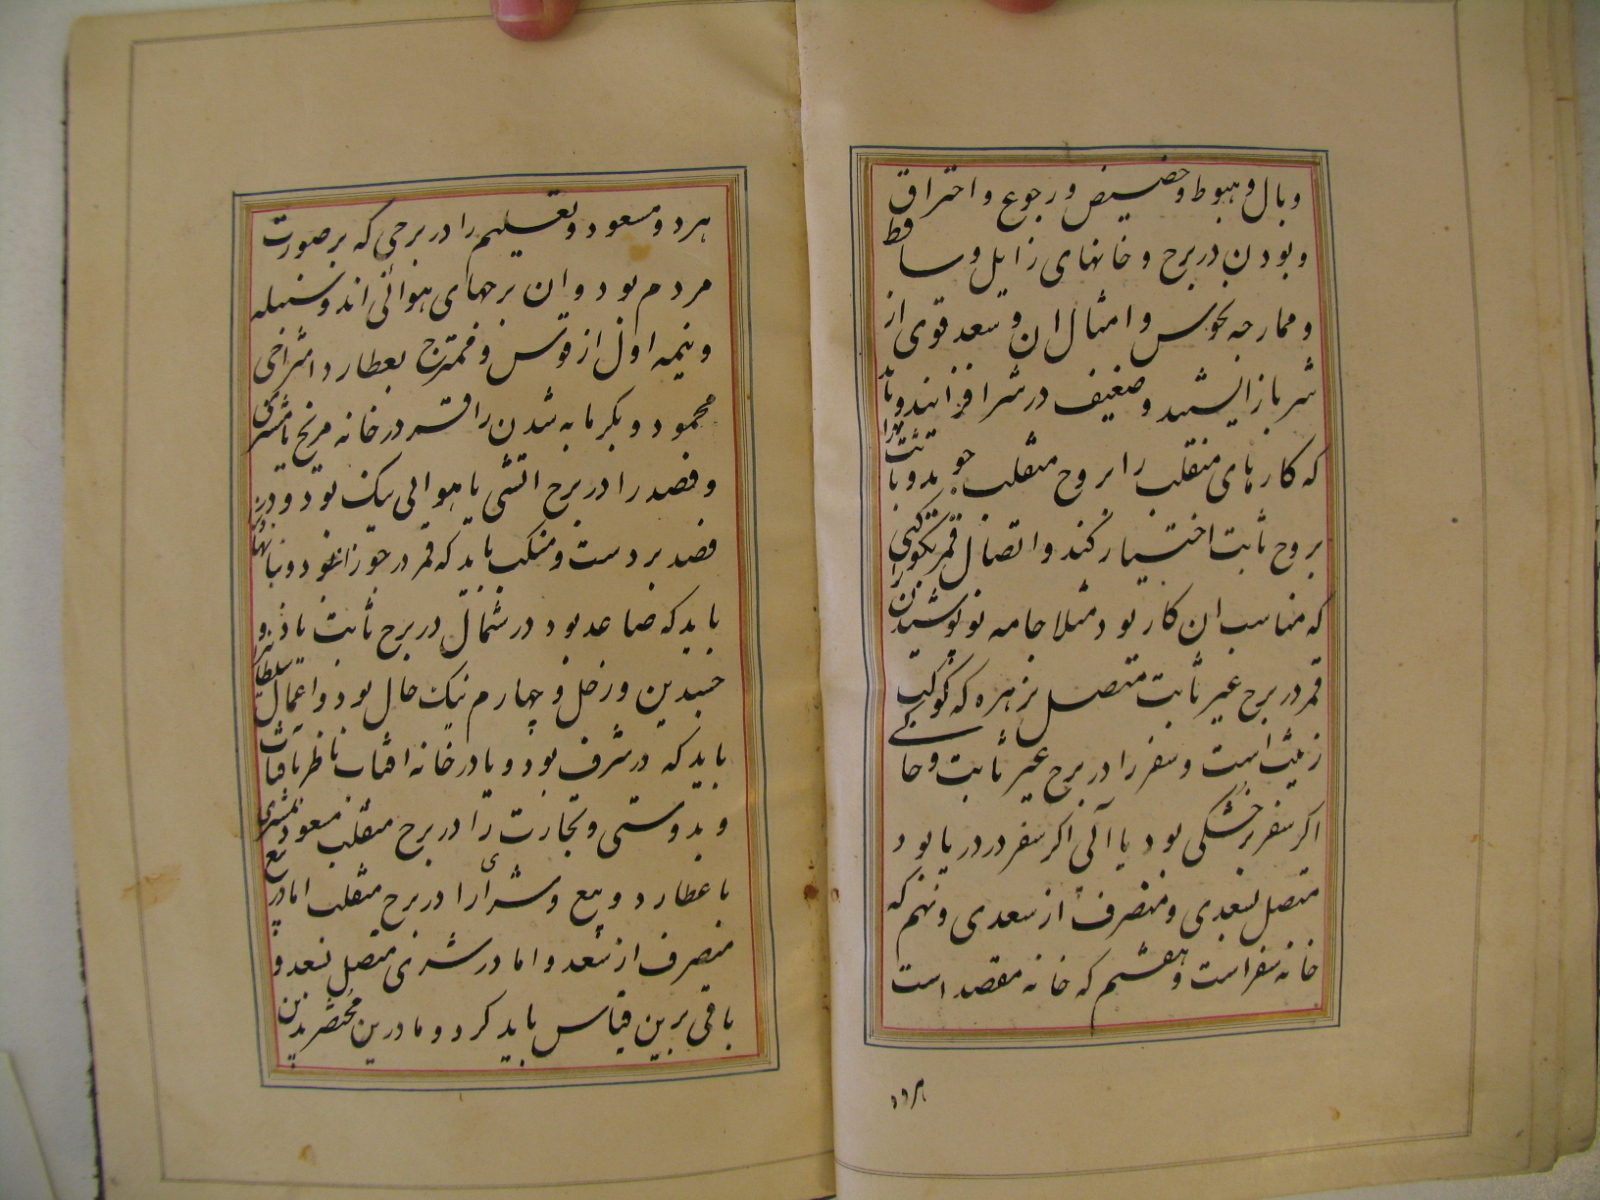 وبال و هبوط و حضیض و رجوع و احتراق
و بودن در برج و خانهای زایل و ساقط
و ممازجه نحوس و امثال ان و سعد قوی از
شر باز ایستد و ضعیف در شر افزایند و باید
که کارهای منقلب را بروج منقلب جوید و ثابت را
بروج ثابت اختیار کند و اتصال قمر بکوکبی
که مناسب ان کار بود مثلا جامه نو پوشیدن را
قمر در برج غیر ثابت متصل بزهره که کوکب
زینت است و سفر را در برج غیر ثابت و خاکی
اکر سفر بر خشکی بود یا آبی اکر سفر در دریا بود
متصل بسعدی و منصرف از سعدی و نهم که
خانه سفر است و هفتم که خانه مقصد است
هر دو
هر دو مسعود و تعلیم را در برجی که بر صورت
مردم بود و ان برجهای هوائی اند و سنبله
و نیمه اول از قوس و قمر ممتزج بعطارد امتزاجی
محمود و بکرمابه شدن را قمر در خانه مریخ یا مشتری
و فصد را در برج اتشی یا هوائی نیک بود و در
فصد بر دست و منکب باید که قمر در جوزا نبود و
باید که صاعد بود در شمال در برج ثابت
و زحل و چهارم نیک حال بود و اعمال
باید که در شرف بود و یا در خانه افتاب ناظر بافتاب
و بدوستی و تجارت را در برج منقلب مسعود بمشتری
با عطارد و بیع و شرا را در برج منقلب اما در بیع
منصرف از سعد و اما در شری متصل بسعد و
باقی برین قیاس باید کرد و ما درین مختصر بدین